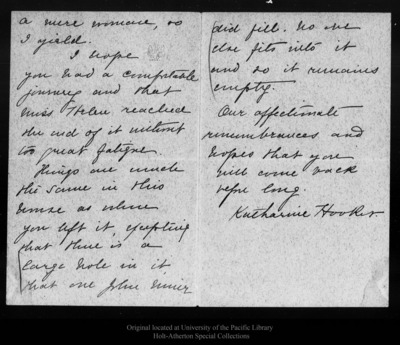 a mere woman, so
I yield.
I hope
you had a comfortable
journey and that
Miss Helen reached
the end of it without
too great fatigue.
Things are much
the same in this
house as when
you left it, excepting
that there is a
large hole in it
that one John Muir
did fill. No one
else fits into it
and so it remains
empty.
Our affectionate
remembrances and
hopes that you
will come back
before long.
Katharine Hooker
Original located at University of the Pacific Library
Holt-Atherton Special Collections